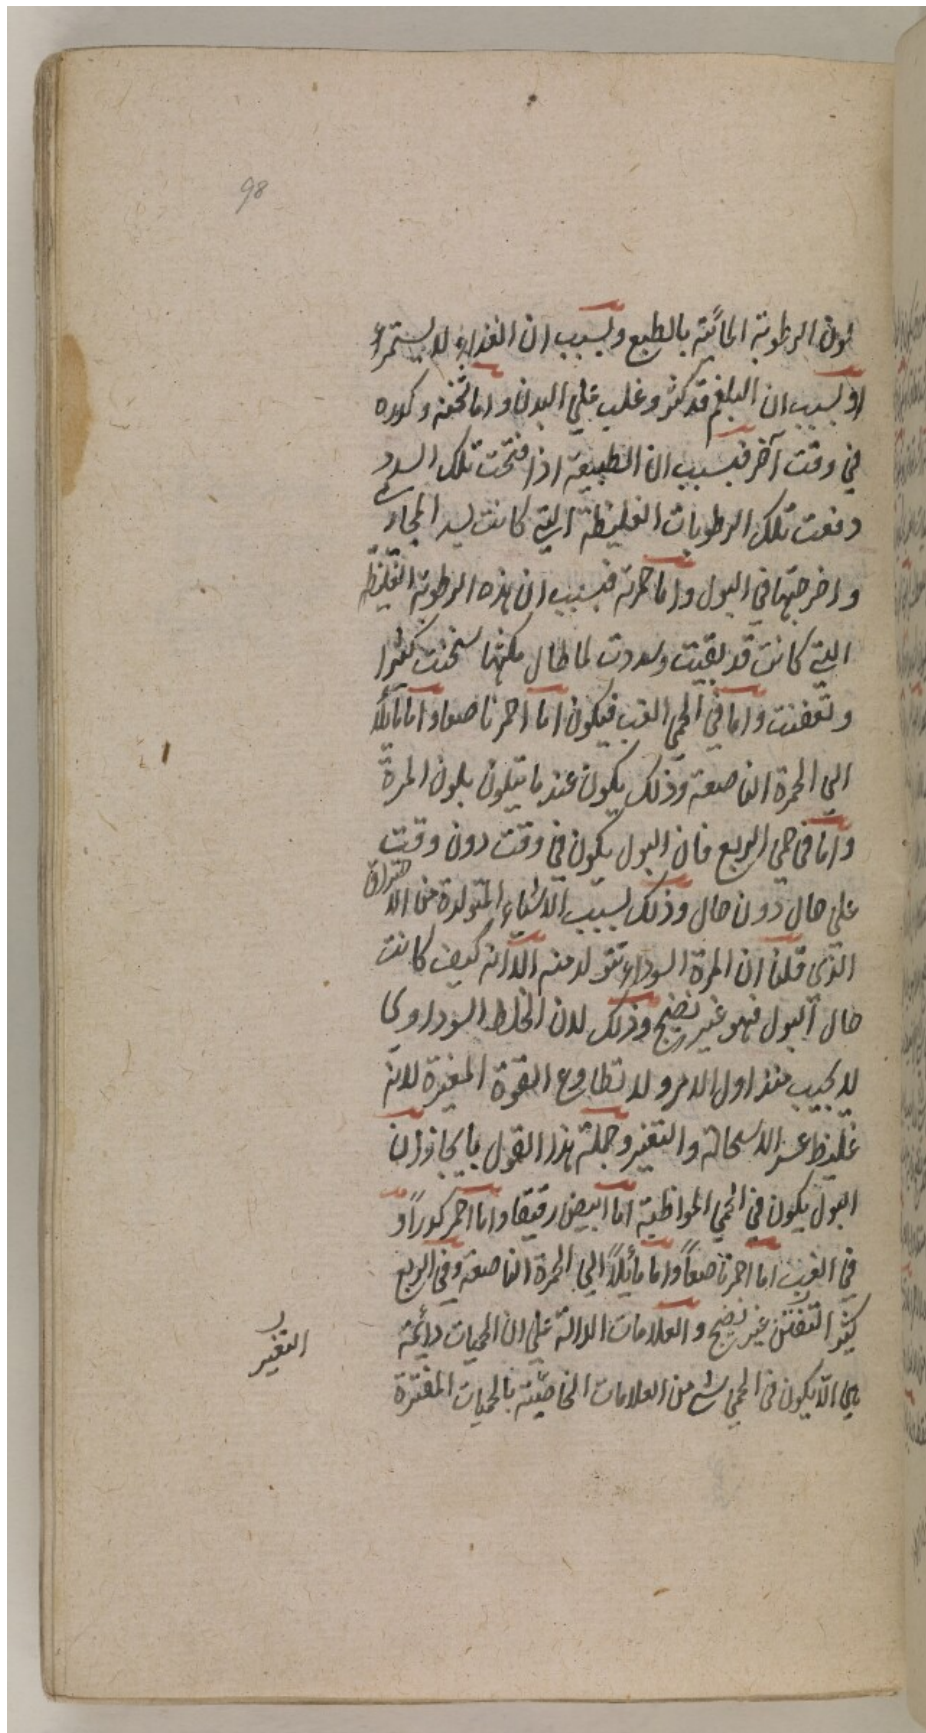 98
لون الرطوبة المائية بالطبع وبسبب ان الغذاء لا يستمرء
او بسبب ان البلغم قد كثر وغلب علي البدن واما ثخنه وكدره
في وقت آخر فبسبب ان الطبيعة اذا فتحت تلك السدد
دفعت تلك الرطوبات الغليظة التي كانت يسد المجاري
واخرجتها في البول واما حمرته فبسبب ان هذه الرطوبة الغليظة
التي كانت قد بقيت وسددت لما طال مكثها سخنت كثيرا
وتعفنت واما في الحمي الغب فيكون اما احمر ناصعا واما مائلا
الي الحمرة الناصعة وذلك يكون عند ما يتلون بلون المرة
واما في حمي الربع فان البول يكون في وقت دون وقت
علي حال دون حال وذلك بسبب الاشياء المتولدة من الاحتراق
الذي قلنا ان المرة السوداء تتولد منه الا انه كيف كانت
حال البول فهو غير نضيج وذلك لان الخلط السوداوي
لا يجيب منذ اول الامر ولا تطاوع القوة المغيرة لانه
غليظ عسر الاستحالة والتغير وجملة هذا القول بايجاز ان
البول يكون في الحمي المواظبة اما ابيض رقيقا واما احمر كدرا و
في الغب اما احمر ناصعا واما مائلا الي الحمرة الناصعة وفي الربع
كثير التفنن غير نضيج والعلامات الدالة علي ان الحميات دائمة
هي الا يكون في الحمي شئ من العلامات الخاصية بالحميات المفترة
التغير